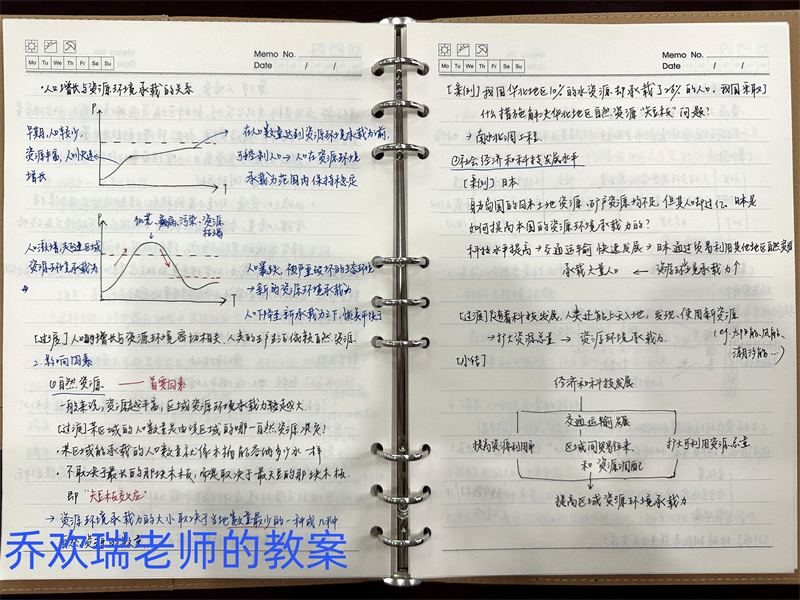 Memo No.
Mo Tu We Th Fr Sa Su
Date / /
·人口增长与资源环境承载的关系
P
早期,人口较少,
资源丰富,人口快速
增长
T
在人口数量达到资源环境承载力前,
于控制人口→人口在资源环境
承载力范围内保持稳定
P
饥荒、疾病、污染、资源
枯竭
人口激增,超过区域
资源环境承载力
T
人口暴跌,被严重破坏的生态环境
→新的资源环境承载力
人口下降至新承载力之下,
[过渡]人口的增长与资源环境密切相关,人类的生产生活依赖自然资源.
2.影响因素
①自然资源 —— 首要因素
一般来说,资源越丰富,区域资源环境承载力就越大.
[过渡]某区域的人口数量是由该区域的哪一自然资源决定?
·某区域能承载的人口数量就像木桶能容纳多少水一样
·不取决于最长的那块木板,而是取决于最短的那块木板.
即“短板效应”
→资源环境承载力的大小取决于当地数量最少的一种或几种
自然资源的数量
乔欢瑞老师的教案
Memo No.
Mo Tu We Th Fr Sa Su
Date / /
[案例]我国华北地区10%的水资源却承载了25%的人口,我国采取
什么措施解决华北地区自然资源“短板”问题?
→南水北调工程.
②社会经济和科技发展水平
[案例]日本
身为岛国的日本土地资源、矿产资源均不足,但其人口却过亿.日本是
如何提高本国的资源环境承载力的?
科技水平提高→交通运输快速发展→日本通过贸易利用其他地区自然资源
承载大量人口 ← 资源环境承载力↑
[过渡]随着科技发展,人类还能上天入地,发现、使用新资源
→扩大资源总量→资源环境承载力.
(eg.太阳能、风能、
潮汐能…)
[小结]
经济和科技发展
交通运输发展
提高资源利用率 区域间贸易往来 扩大可利用资源总量
和资源调配
提高区域资源环境承载力